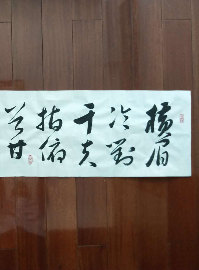 横眉
冷對
千夫
指俯
首甘